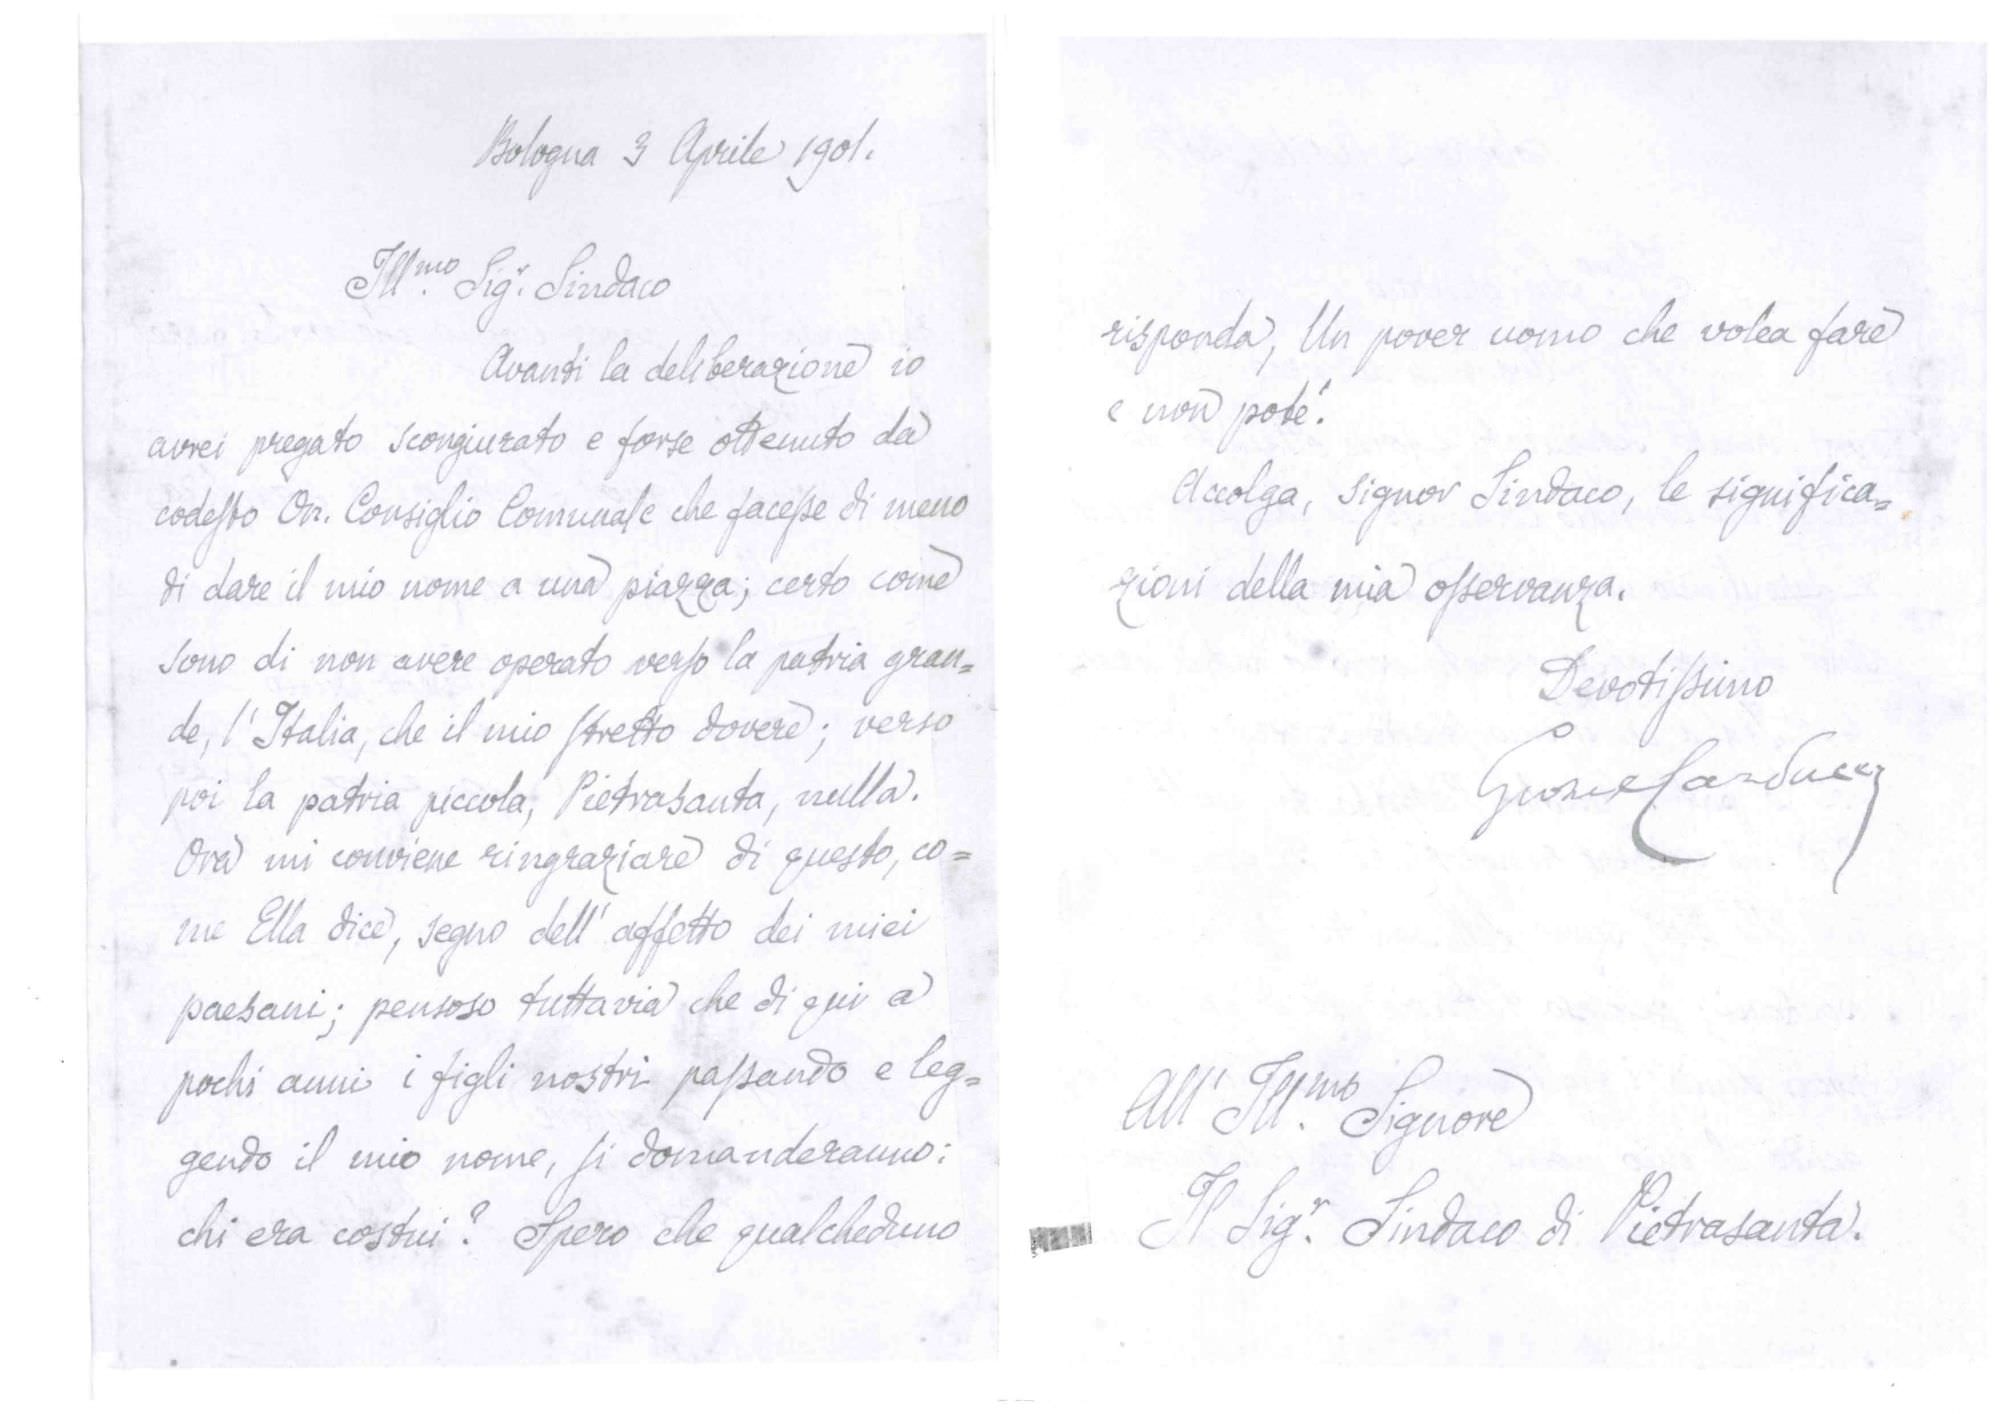 Bologna 3 Aprile 1901.
Ill.mo Sig.r Sindaco
Avanti la deliberazione io
avrei pregato scongiurato e forse ottenuto da
codesto On. Consiglio Comunale che facesse di meno
di dare il mio nome a una piazza; certo come
sono di non avere operato verso la patria gran=
de, l'Italia, che il mio stretto dovere; verso
poi la patria piccola, Pietrasanta, nulla.
Ora mi conviene ringraziare di questo, co=
me Ella dice, segno dell'affetto dei miei
paesani; pensoso tuttavia che di qui a
pochi anni i figli nostri passando e leg=
gendo il mio nome, si domanderanno:
chi era costui? Spero che qualcheduno
risponda, Un pover uomo che volea fare
e non poté.
Accolga, signor Sindaco, le significa=
zioni della mia osservanza.
Devotissimo
Giosue Carducci
All' Ill.mo Signore
Il Sig.r Sindaco di Pietrasanta.